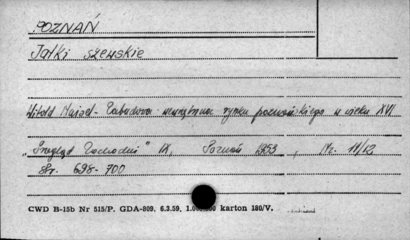 POZNAŃ
Jatki szewskie
Witold Maisel - Zabudowa wewnętrzna rynku poznańskiego w wieku XVI
"Przegląd Zachodni" IX, Poznań 1953, Nr. 11/12
str. 698-700
CWD B-15b Nr 515/P. GDA-809. 6.3.59. karton 180/V.